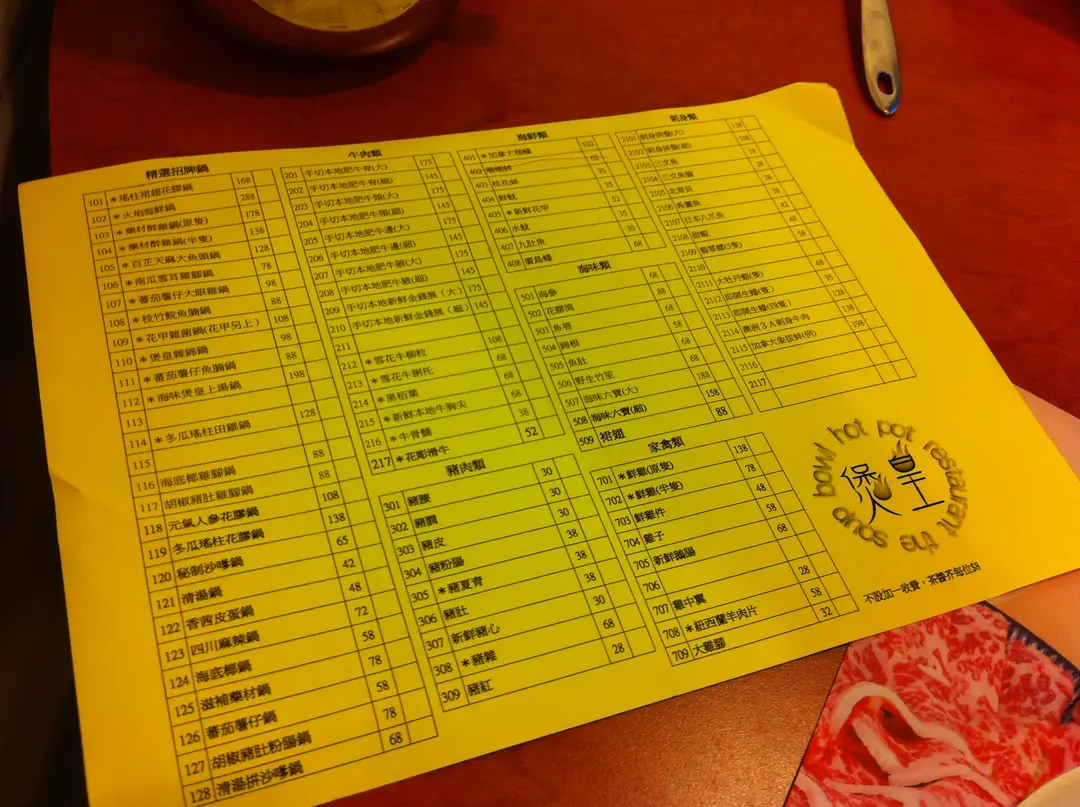 精選招牌鍋
101 *瑤柱裙翅花膠鍋 168
102 *火焰海鮮鍋 288
103 *藥材醉雞鍋(原隻) 178
104 *藥材醉雞鍋(半隻) 138
105 *百芷天麻大魚頭鍋 128
106 *南瓜雪耳雞腳鍋 78
107 *蕃茄薯仔大眼雞鍋 98
108 *枝竹魚腩鍋 88
109 *花甲雜菌鍋(花甲另上) 108
110 *煲皇雜錦鍋 98
111 *蕃茄薯仔魚腩鍋 88
112 *海味煲皇上湯鍋 198
113
114 *冬瓜瑤柱田雞鍋 128
115
116 海底椰雞腳鍋 88
117 胡椒豬肚雞腳鍋 88
118 元氣人參花膠鍋 108
119 冬瓜瑤柱花膠鍋 138
120 秘制沙嗲鍋 65
121 清湯鍋 42
122 香茜皮蛋鍋 48
123 四川麻辣鍋 72
124 海底椰鍋 58
125 滋補藥材鍋 78
126 蕃茄薯仔鍋 58
127 胡椒豬肚粉腸鍋 78
128 清湯拼沙嗲鍋 68
牛肉類
201 手切本地肥牛脊(大) 175
202 手切本地肥牛脊(細) 145
203 手切本地肥牛頸(大) 175
204 手切本地肥牛頸(細) 145
205 手切本地肥牛邊(大) 175
206 手切本地肥牛邊(細) 145
207 手切本地肥牛腩(大) 175
208 手切本地肥牛腩(細) 145
209 手切本地新鮮金錢展(大) 175
210 手切本地新鮮金錢展(細) 145
211
212 *雪花牛柳粒 108
213 *雪花牛脷托 68
214 *黑栢葉 68
215 *新鮮本地牛胸尖 68
216 *牛骨髓 38
217 *花彫滑牛 52
豬肉類
301 豬腰
302 豬膶 30
303 豬皮 30
304 豬粉腸 38
305 *豬夏青 38
306 豬肚 38
307 新鮮豬心 30
308 *豬雜 68
309 豬紅 28
海鮮類
401 *加拿大桶蠔 102
402 珊瑚蚌 62
403 桂花蚌 70
404 鮮魷 35
405 *新鮮花甲 52
406 水魷 35
407 九肚魚 30
408 廣島蠔 68
海味類
501 海參 68
502 花膠筒 88
503 魚唇 68
504 蹄根 58
505 魚肚 68
506 野生竹笙 68
507 海味六寶(大) 188
508 海味六寶(細) 158
509 裙翅 88
家禽類
701 *鮮雞(原隻) 138
702 *鮮雞(半隻) 78
703 鮮雞件 48
704 雞子 58
705 新鮮鵝腸 68
706
707 雞中翼 28
708 *紐西蘭羊肉片 58
709 大雞腳 32
刺身類
2101 刺身拼盤(大)
2102 刺身拼盤(細)
2103 三文魚
2104 三文魚腩
2105 北海貝
2106 希靈魚
2107 日本八爪魚
2108 甜蝦
2109 翡翠螺
2110
2111 大牡丹蝦(隻)
2112 即開生蠔(隻)
2113 即開生蠔(四隻)
2114 澳洲3A刺身牛肉 128
2115 加拿大象拔蚌(例) 198
2116
2117
煲皇
bowl hot pot restaurant the soup
不設加一收費，茶醬芥每位$8